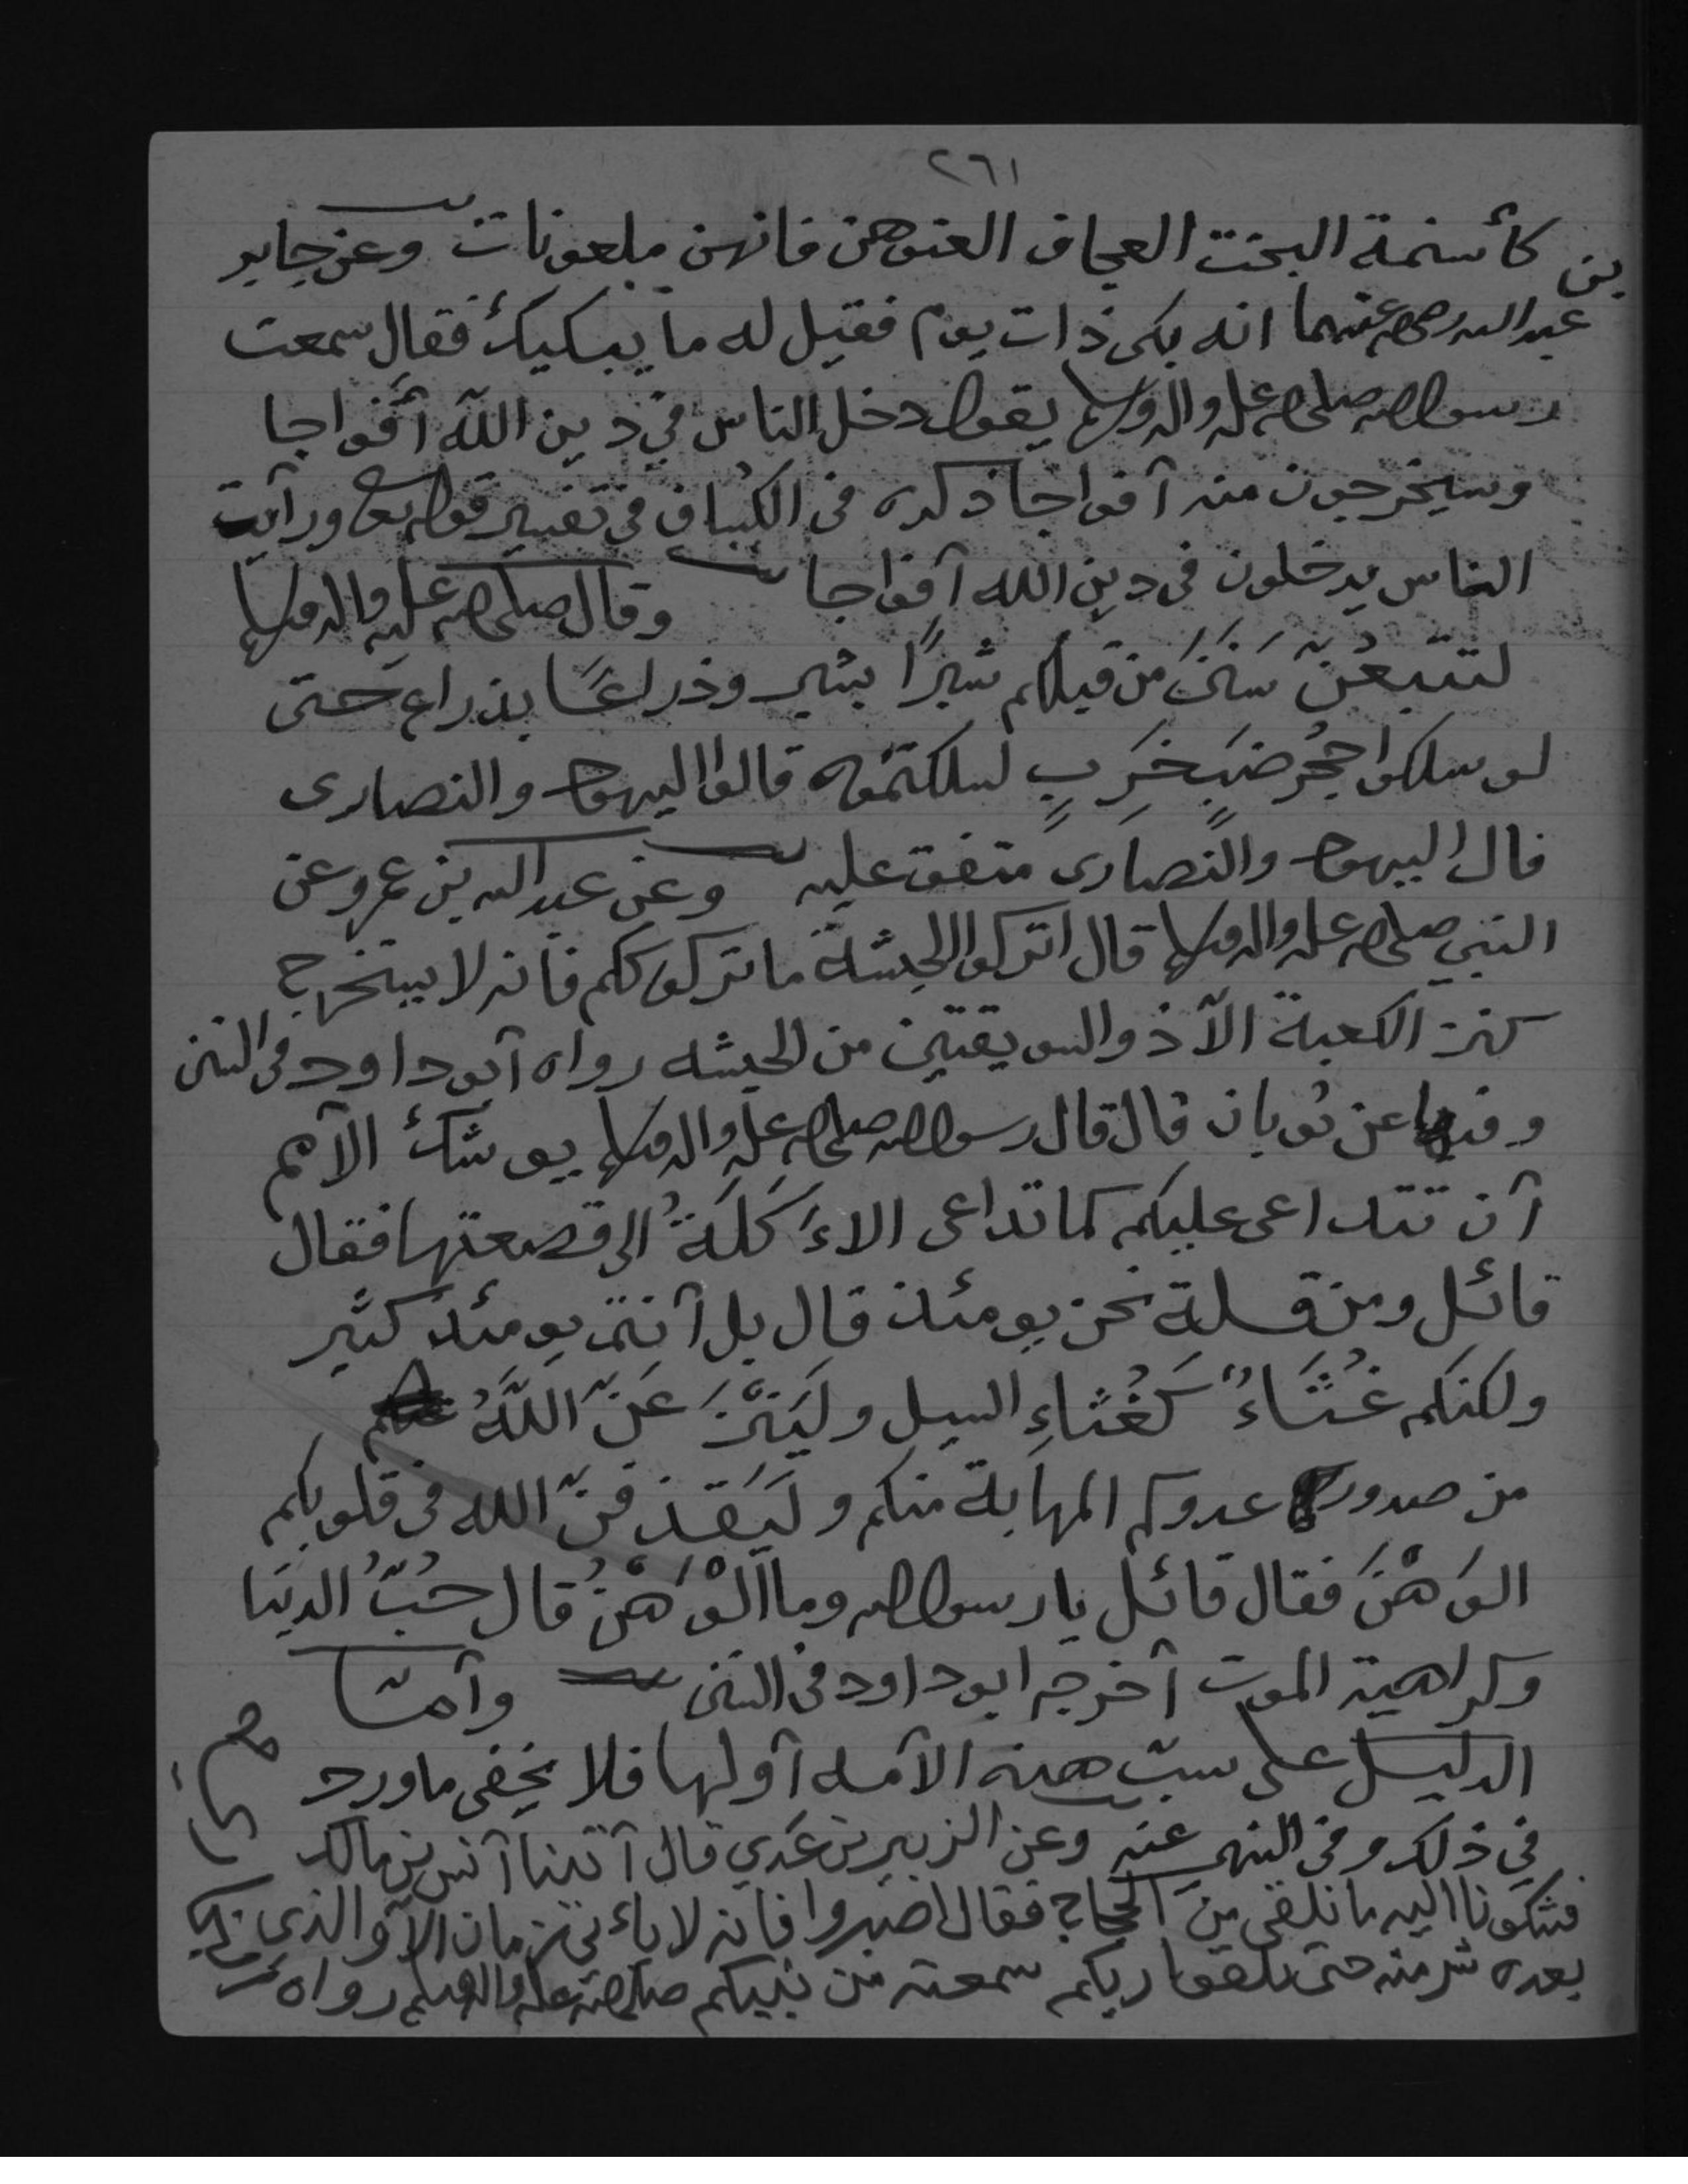 ٢٦١
كأسنمة البخت العجاف العنوهن فانهن ملعونات وعن جابر
بن
عبد الله رضي الله عنهما انه بكى ذات يوم فقيل له ما يبكيك فقال سمعت
رسول الله صلى الله عليه واله وسلم يقول دخل الناس في دين الله أفواجا
وسيخرجون منه أفواجا ذكره فى الكشاف فى تفسير قوله تعالى ورأيت
الناس يدخلون فى دين الله أفواجا وقال صلى الله عليه واله وسلم
لتتبعُنّ سَنَنَ من قبلكم شبرًا بشبر وذراعًا بذراع حتى
لو سلكوا جُحْر ضب خَرِبٍ لسلكتموه قالوا اليهود والنصارى
قال اليهود والنصارى متفق عليه وعن عبد الله بن عمرو عن
النبي صلى الله عليه واله وسلم قال اتركوا الحبشة ما تركوكم فانه لا يستخرج
كنز الكعبة الاّ ذو السويقتين من الحبشه رواه أبو داود فى السنن
وفيها عن ثوبان قال قال رسول الله صلى الله عليه واله وسلم يوشك الأمم
أن تتداعى عليكم كما تداعى الاءَكَلَةُ الى قصعتها فقال
قائل ومن قلة نحن يومئذ قال بل أنتم يومئذ كثير
ولكنكم غُثَاءٌ كَغُثاءِ السيل ولَيَنْزَعَنّ اللَّهُ
من صدور عدوكم المهابة منكم ولَيَقذفنّ الله فى قلوبكم
الوَهْنَ فقال قائل يا رسول الله وما الْوَهْنُ قال حُبُّ الدنيا
وكراهية الموت أخرجه ابو داود فى السنن وأمّا
الدليل على سبّ هذه الأمه أولها فلا يخفى ما ورد
في ذلك وفى النهي عنه وعن الزبير بن عَدي قال أتينا أنس بن مالك
فشكونا اليه ما نلقى مِنَ الحجاج فقال اصبروا فانه لا يأتى زمان الاّ والذى
بعده شر منه حتى تلقوا ربكم سمعته من نبيكم صلى الله عليه واله وسلم رواه